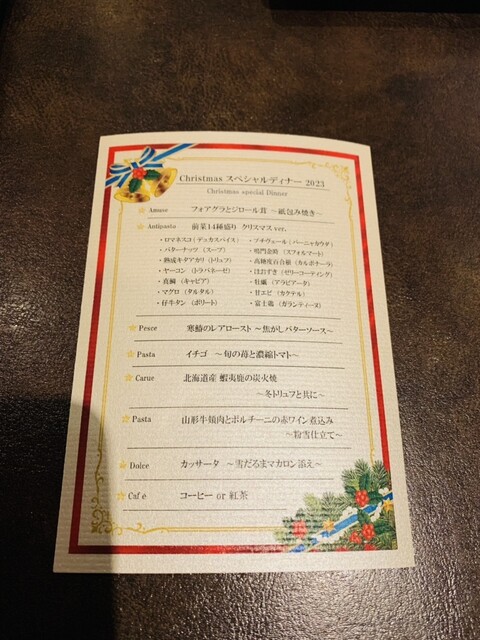 Christmas スペシャルディナー 2023
Christmas special Dinner
Amuse フォアグラとジロール茸 ～紙包み焼き～
Antipasta 前菜14種盛り クリスマス ver.
・ロマネスコ（デュカスパイス） ・プチヴェール（バーニャカウダ）
・バターナッツ（スープ） ・鳴門金時（スフォルマート）
・熟成キタアカリ（トリュフ） ・高糖度百合根（カルボナーラ）
・ヤーコン（トラパネーゼ） ・ほおずき（ゼリーコーティング）
・真鯛（キャビア） ・牡蠣（アラビアータ）
・マグロ（タルタル） ・甘エビ（カクテル）
・仔牛タン（ボリート） ・富士鶏（ガランティーヌ）
Pesce 寒鰆のレアロースト ～焦がしバターソース～
Pasta イチゴ ～旬の苺と濃縮トマト～
Carue 北海道産 蝦夷鹿の炭火焼
～冬トリュフと共に～
Pasta 山形牛頬肉とポルチーニの赤ワイン煮込み
～粉雪仕立て～
Dolce カッサータ ～雪だるまマカロン添え～
Café コーヒー or 紅茶